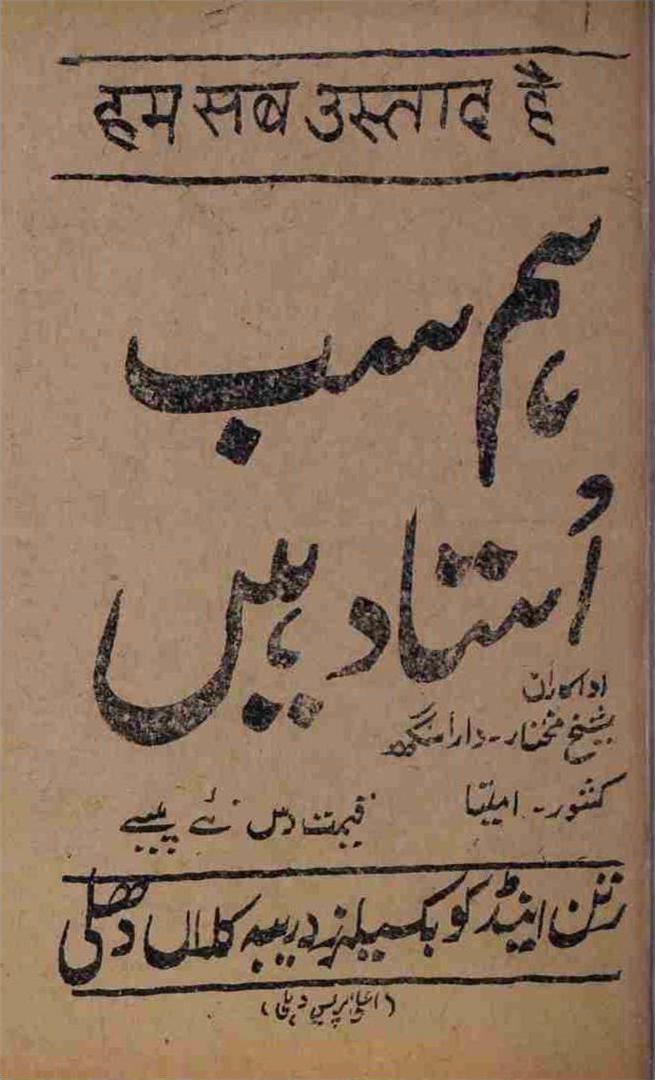 हम सब उस्ताद है
ہم سب
اُستاد ہیں
اداکاران
شیخ مختار - دارا سنگھ
کشور - امیتا
قیمت دس نئے پیسے
رتن اینڈ کو بکسیلرز دریبہ کلاں دھلی
(اعلیٰ پریس دہلی)